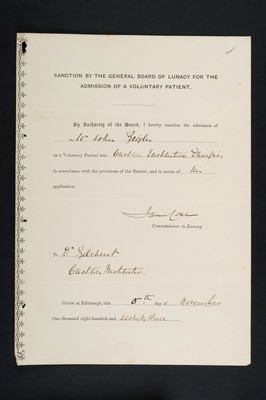 SANCTION BY THE GENERAL BOARD OF LUNACY FOR THE
ADMISSION OF A VOLUNTARY PATIENT.
By Authority of the Board, I hereby sanction the admission of
Mr John
as a Voluntary Patient into Crichton Institution Dumfries
in accordance with the provisions of the Statute, and in terms of his
application.
James Coxe
Commissioner in Lunacy.
To Dr Gilchrist
Crichton Institution
GIVEN at Edinburgh, this 8th day of November
One thousand eight hundred and seventy three